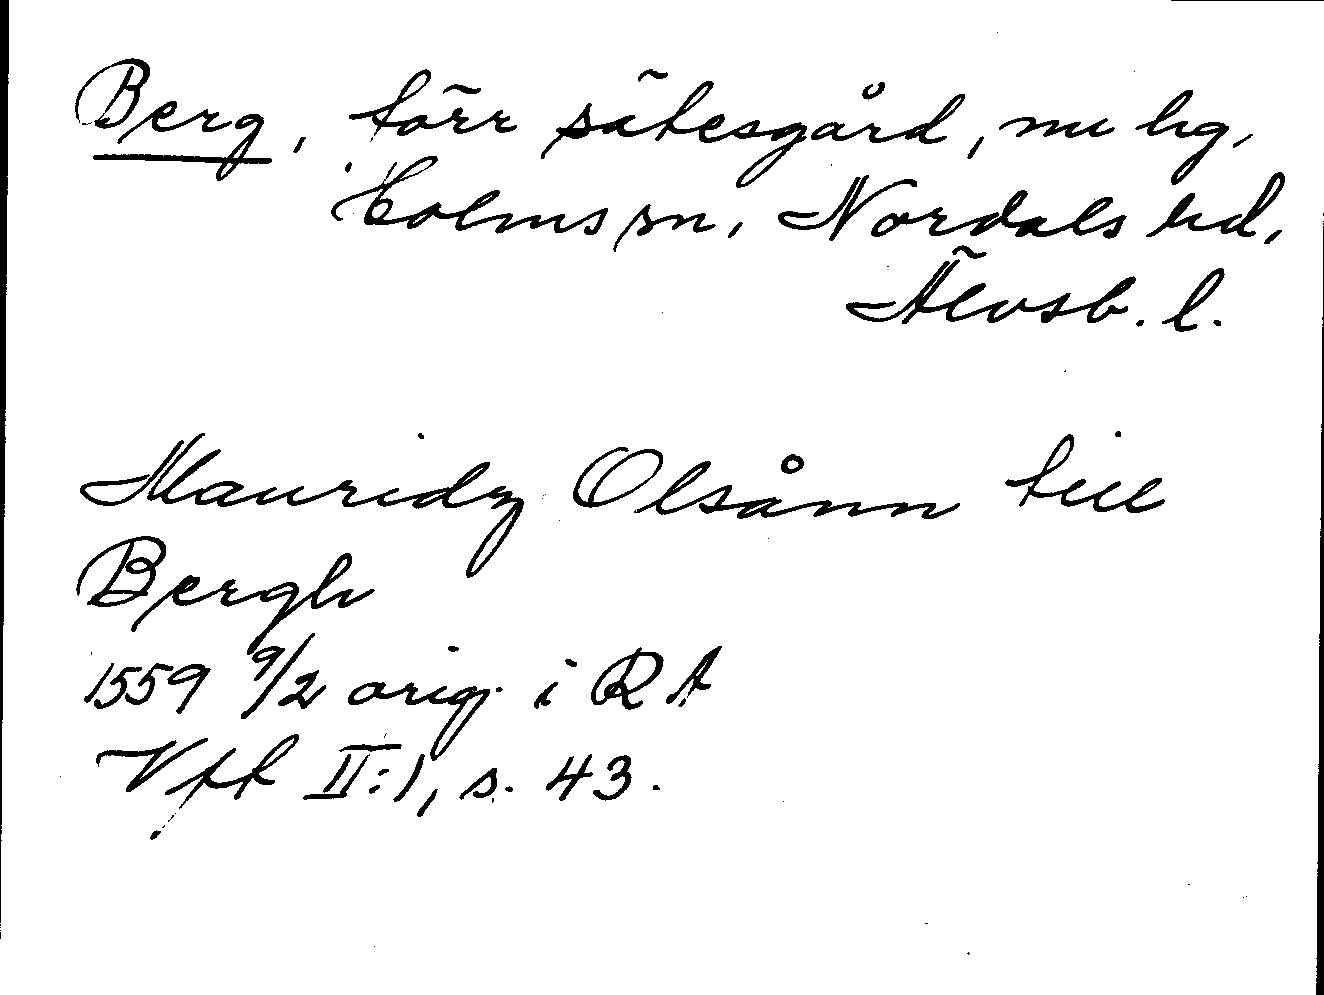 Berg, förr sätesgård, nu hg,
Holms sn, Nordals hd,
Älvsb. l.
Mauridz Olsånn till
Bergh
1559 9/2 orig. i RA
Vff II:1, s. 43.